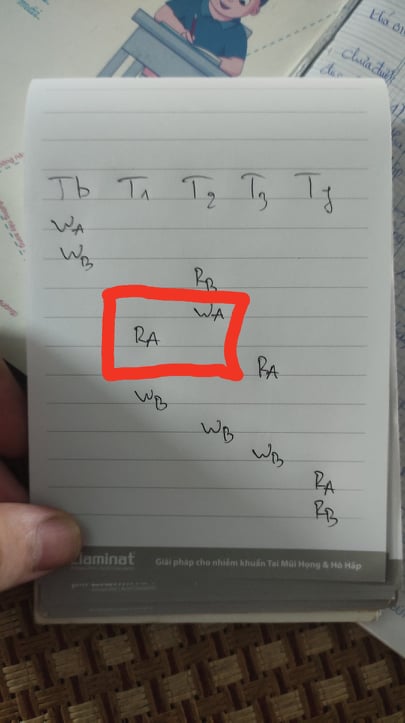 Tb T1 T2 T3 Tf
WA
WB
RB
WA
RA
RA
WB
WB
WB
RA
RB
laminat
Giải pháp cho nhiễm khuẩn Tai Mũi Họng & Hô Hấp